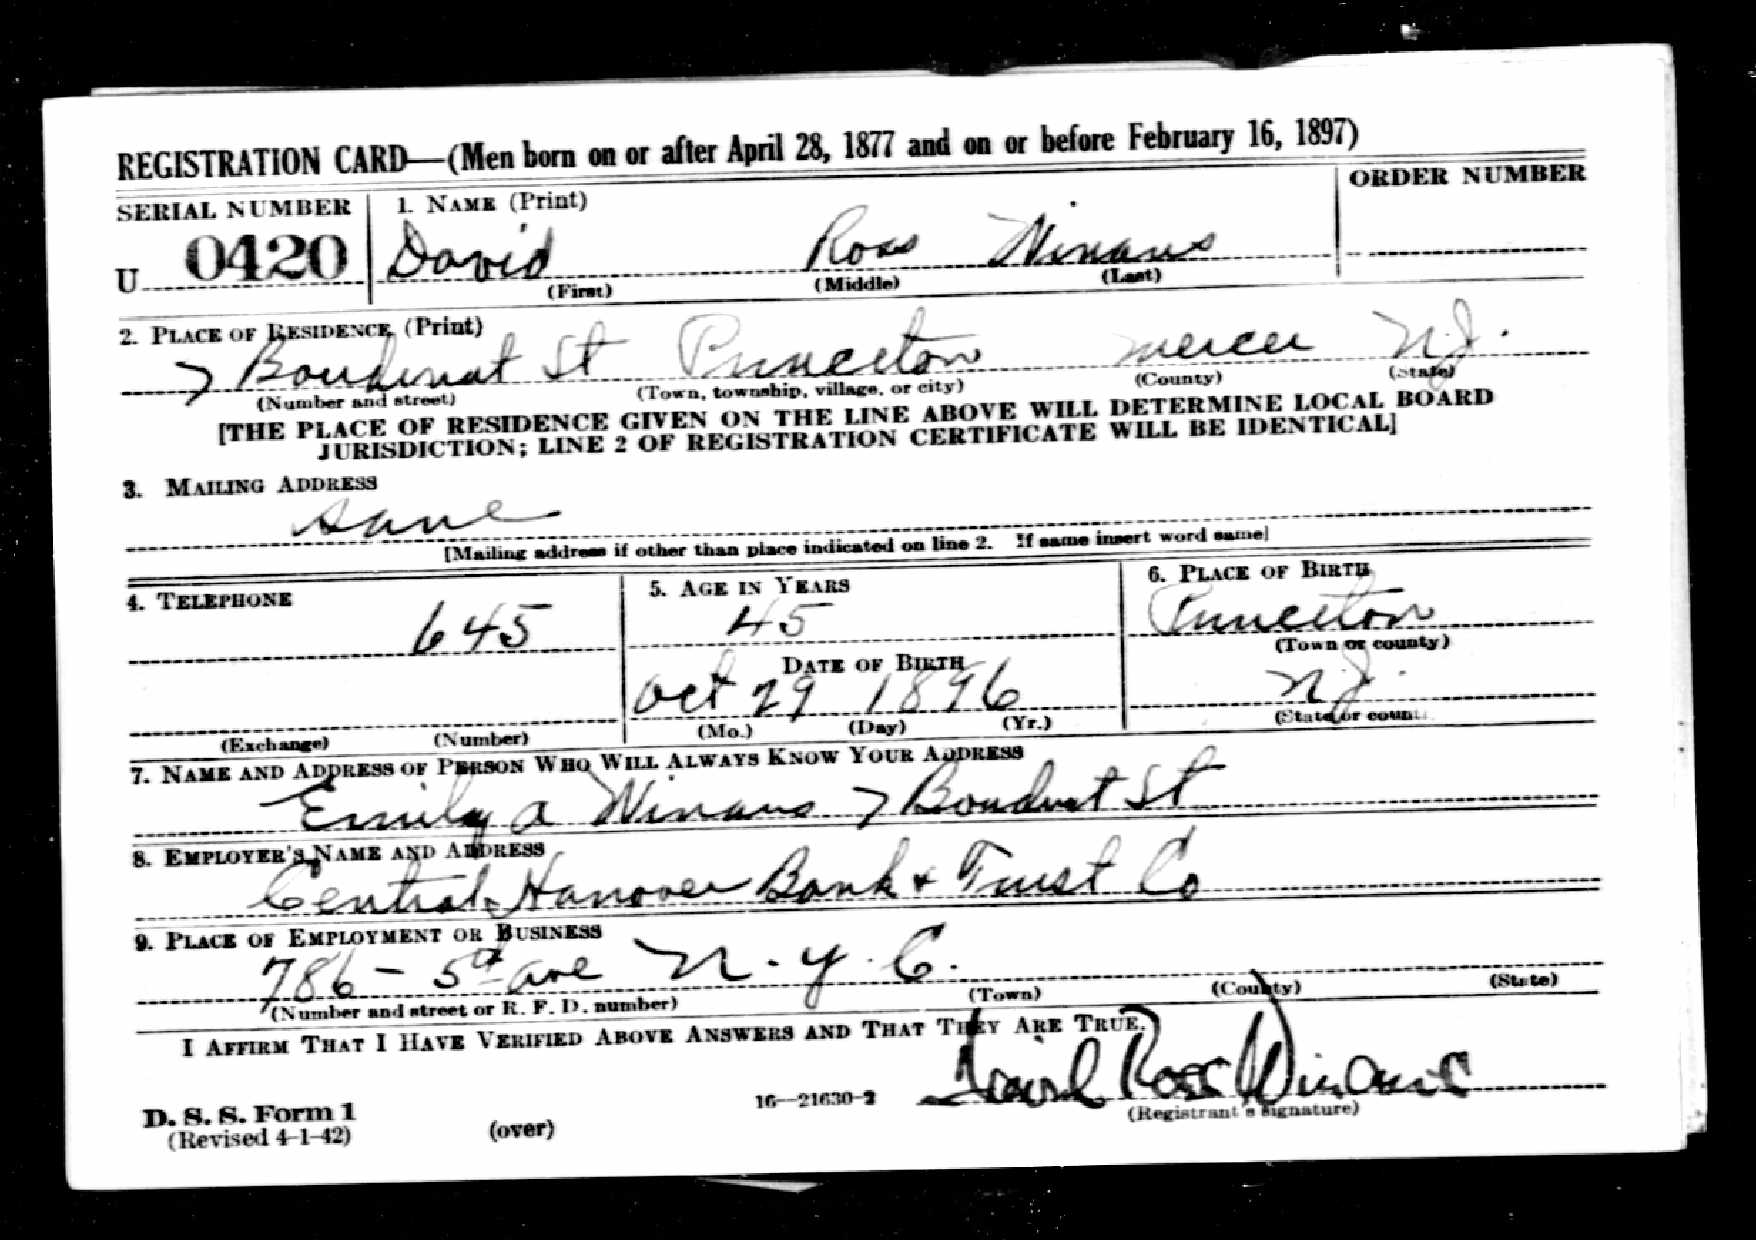 REGISTRATION CARD—(Men born on or after April 28, 1877 and on or before February 16, 1897)
SERIAL NUMBER 1. NAME (Print) ORDER NUMBER
U 0420 David Ross Winans
(First) (Middle) (Last)
2. PLACE OF RESIDENCE (Print)
7 Boudinot St Princeton Mercer N.J.
(Number and street) (Town, township, village, or city) (County) (State)
[THE PLACE OF RESIDENCE GIVEN ON THE LINE ABOVE WILL DETERMINE LOCAL BOARD
JURISDICTION; LINE 2 OF REGISTRATION CERTIFICATE WILL BE IDENTICAL]
3. MAILING ADDRESS
Same
[Mailing address if other than place indicated on line 2. If same insert word same]
4. TELEPHONE 5. AGE IN YEARS 6. PLACE OF BIRTH
645 45 Princeton
(Town or county)
DATE OF BIRTH
Oct 29 1896 N.J.
(Exchange) (Number) (Mo.) (Day) (Yr.) (State or country)
7. NAME AND ADDRESS OF PERSON WHO WILL ALWAYS KNOW YOUR ADDRESS
Emily A Winans 7 Boudnot St
8. EMPLOYER'S NAME AND ADDRESS
Central Hanover Bank & Trust Co
9. PLACE OF EMPLOYMENT OR BUSINESS
786 - 5th ave N.Y.C.
(Number and street or R. F. D. number) (Town) (County) (State)
I AFFIRM THAT I HAVE VERIFIED ABOVE ANSWERS AND THAT THEY ARE TRUE.
David Ross Winans
D. S. S. Form 1 16—21630-2 (Registrant's signature)
(Revised 4-1-42) (over)